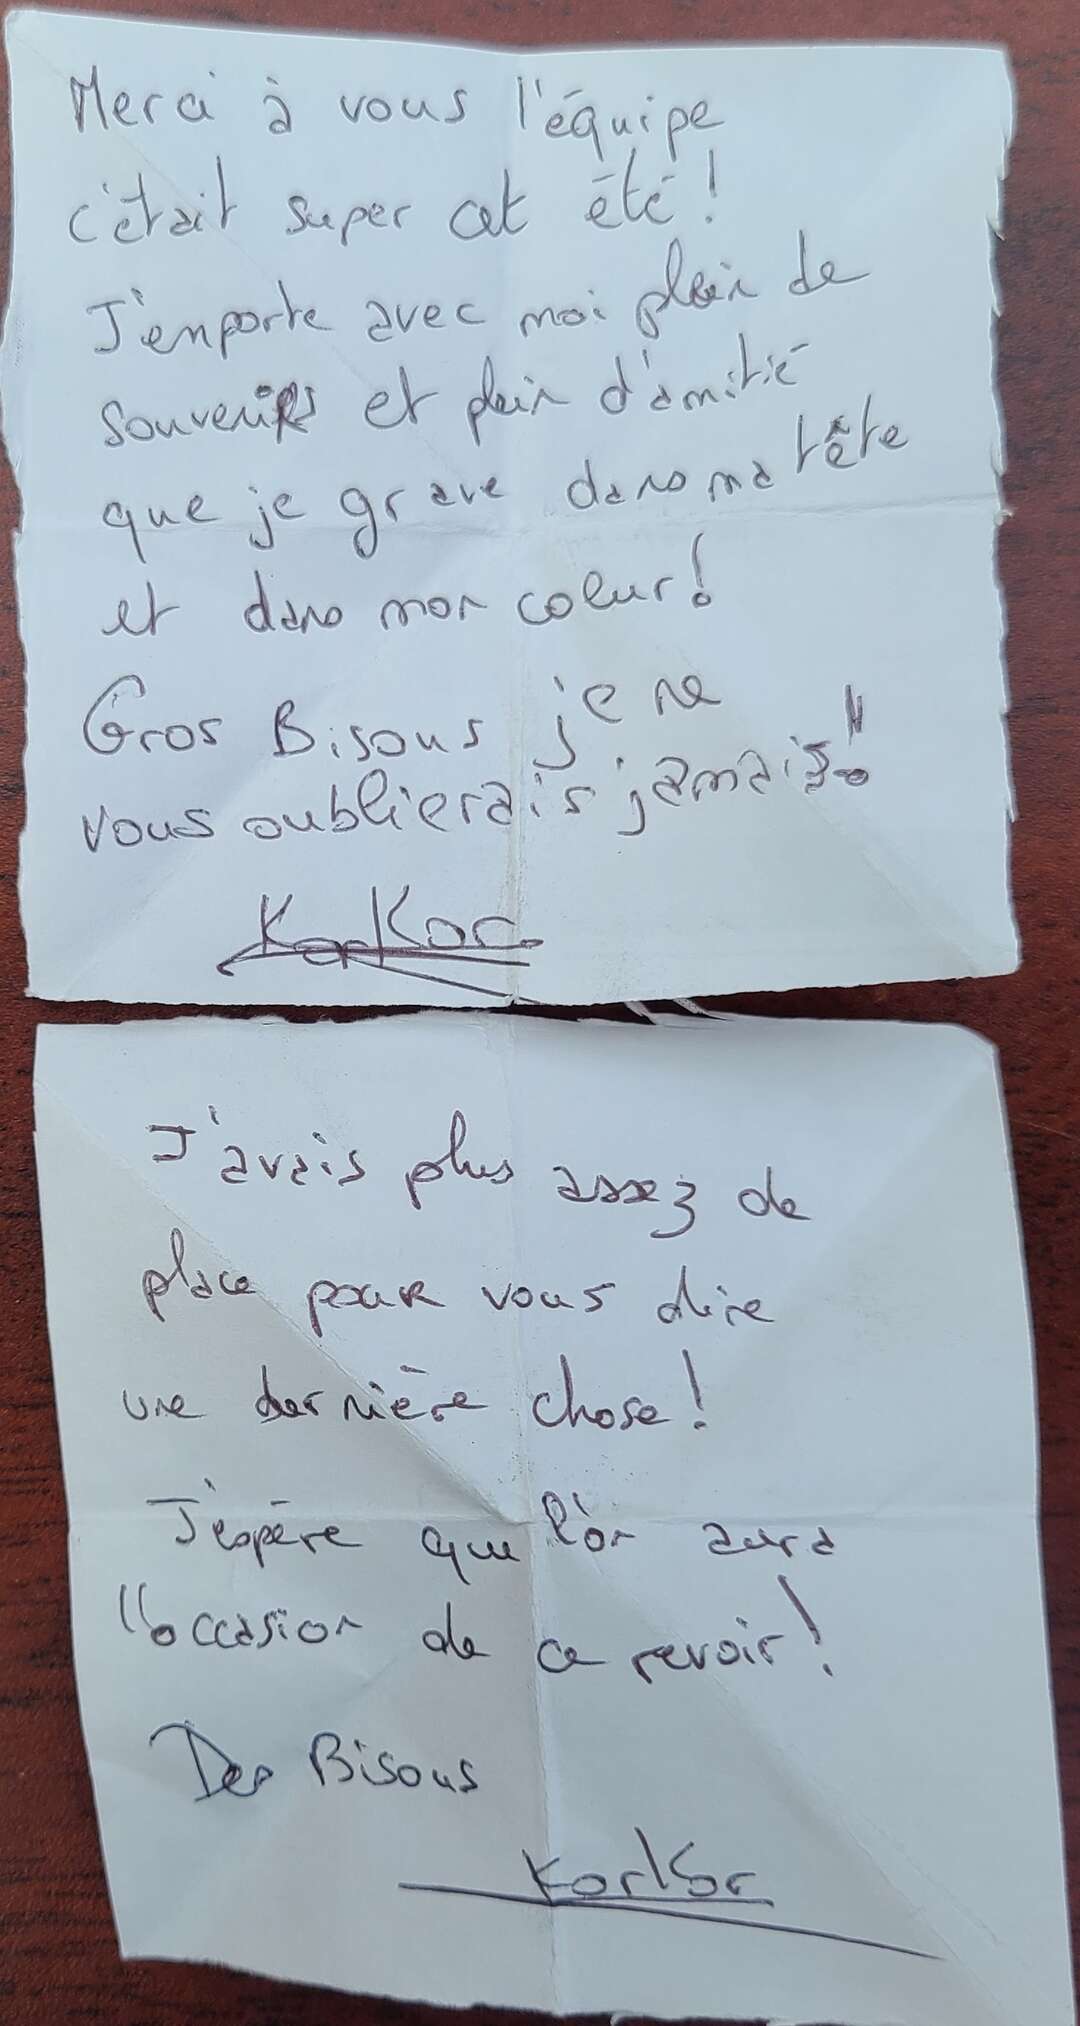 Merci à vous l'équipe
c'était super cet été !
J'emporte avec moi plein de
souvenirs et plein d'amitié
que je grave dans ma tête
et dans mon coeur !
Gros Bisous je ne
vous oublierais jamais !!
J'avais plus assez de
place pour vous dire
une dernière chose !
J'espère que l'on aura
l'occasion de ce revoir !
Des Bisous